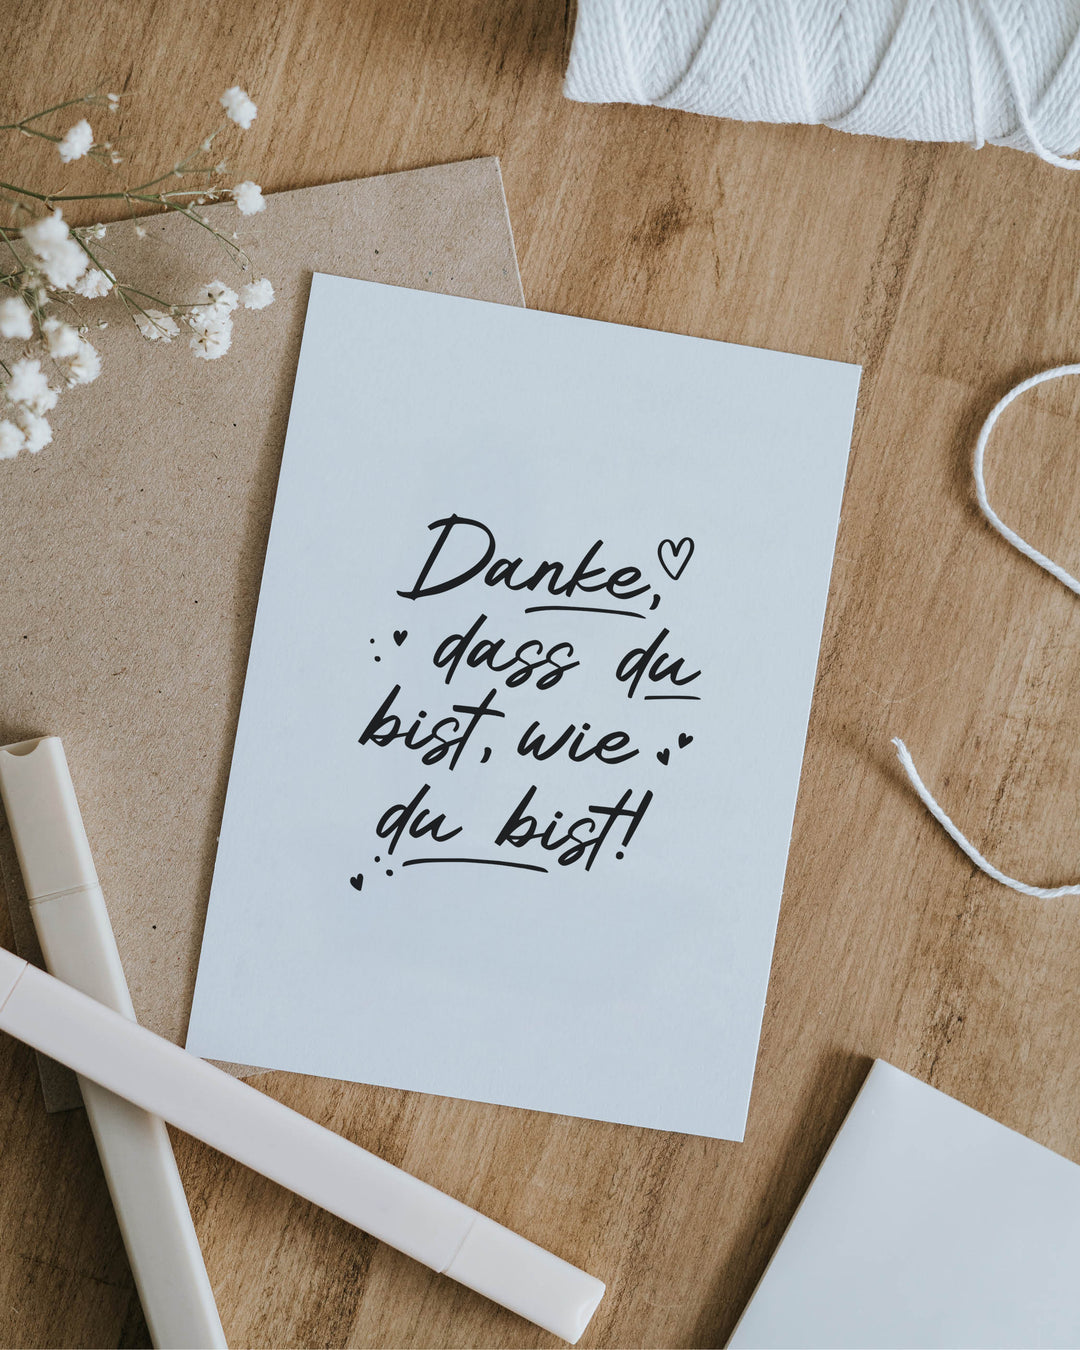 Danke,
dass du
bist, wie
du bist!